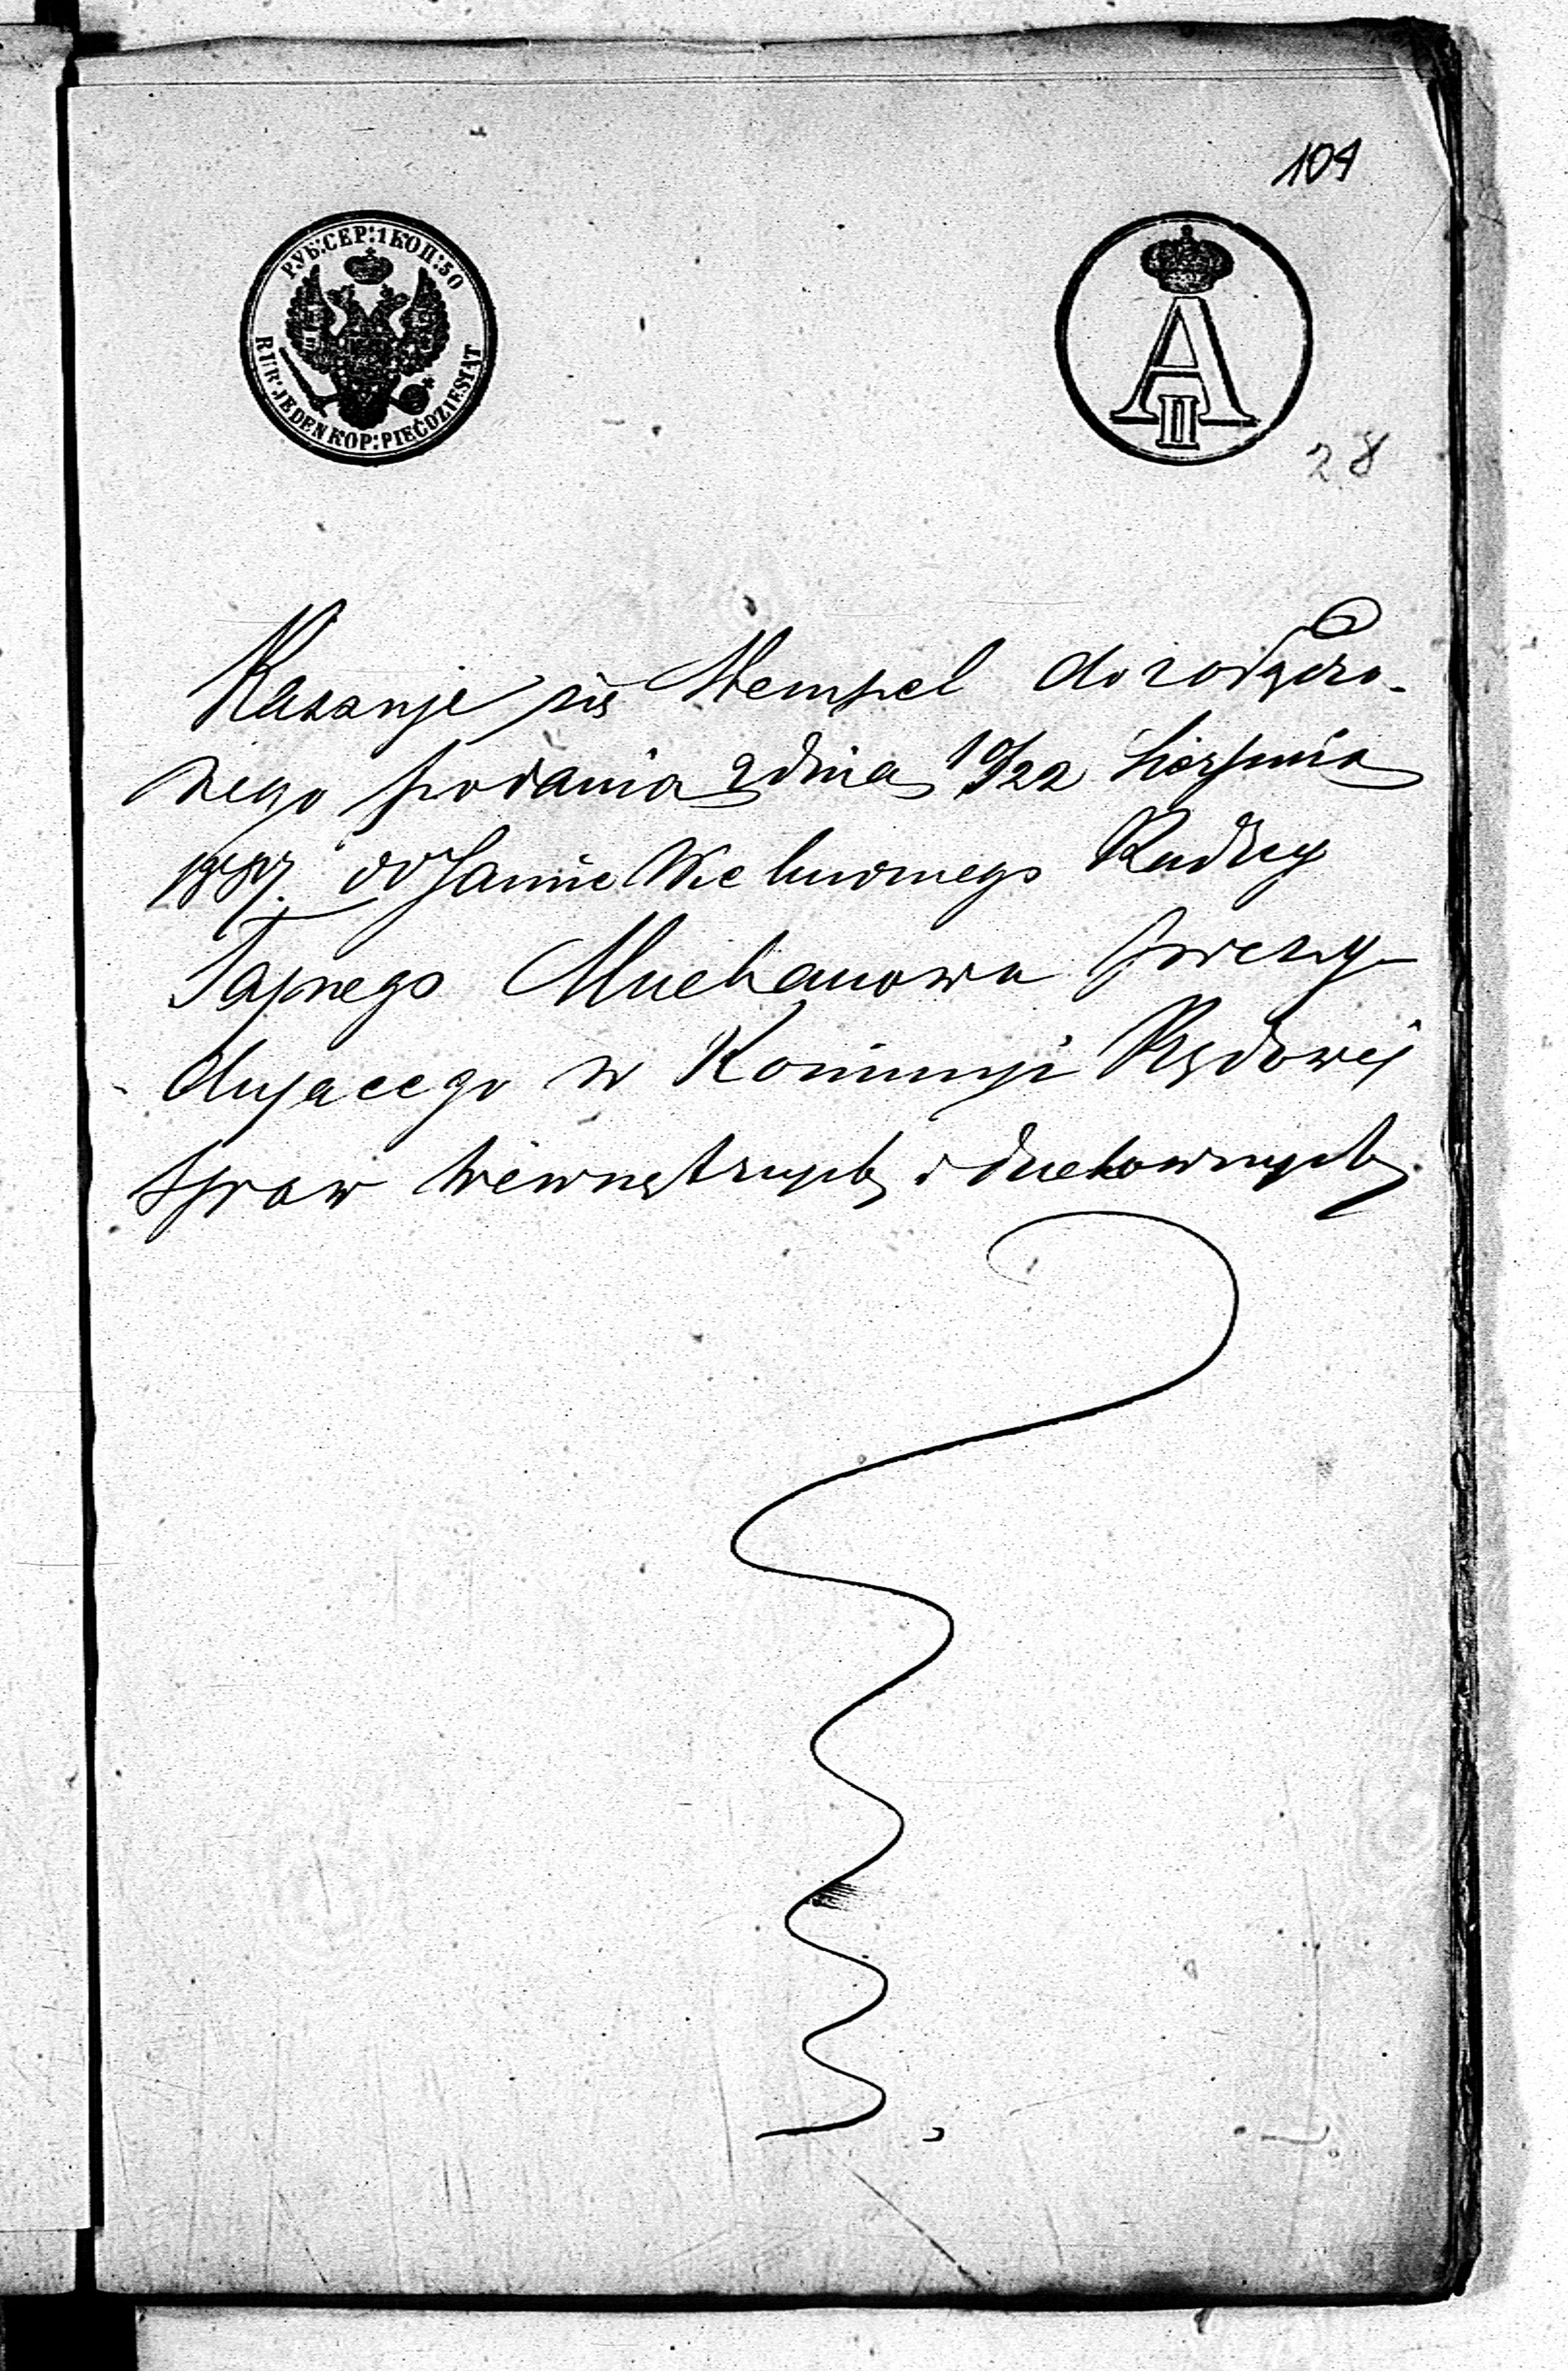 104
РУБ: СЕР: 1 КОП: 50
RUB: JEDEN KOP: PIĘĆDZIESIĄT
A II
28
Kassuje się Stempel do załączo-
nego podania z dnia 10/22 Sierpnia
1857 do Jaśnie Wielmożnego Radzcy
Tajnego Muchanowa prezy-
dującego w Kommissyi Rządowej
Spraw Wewnętrznych i duchownych